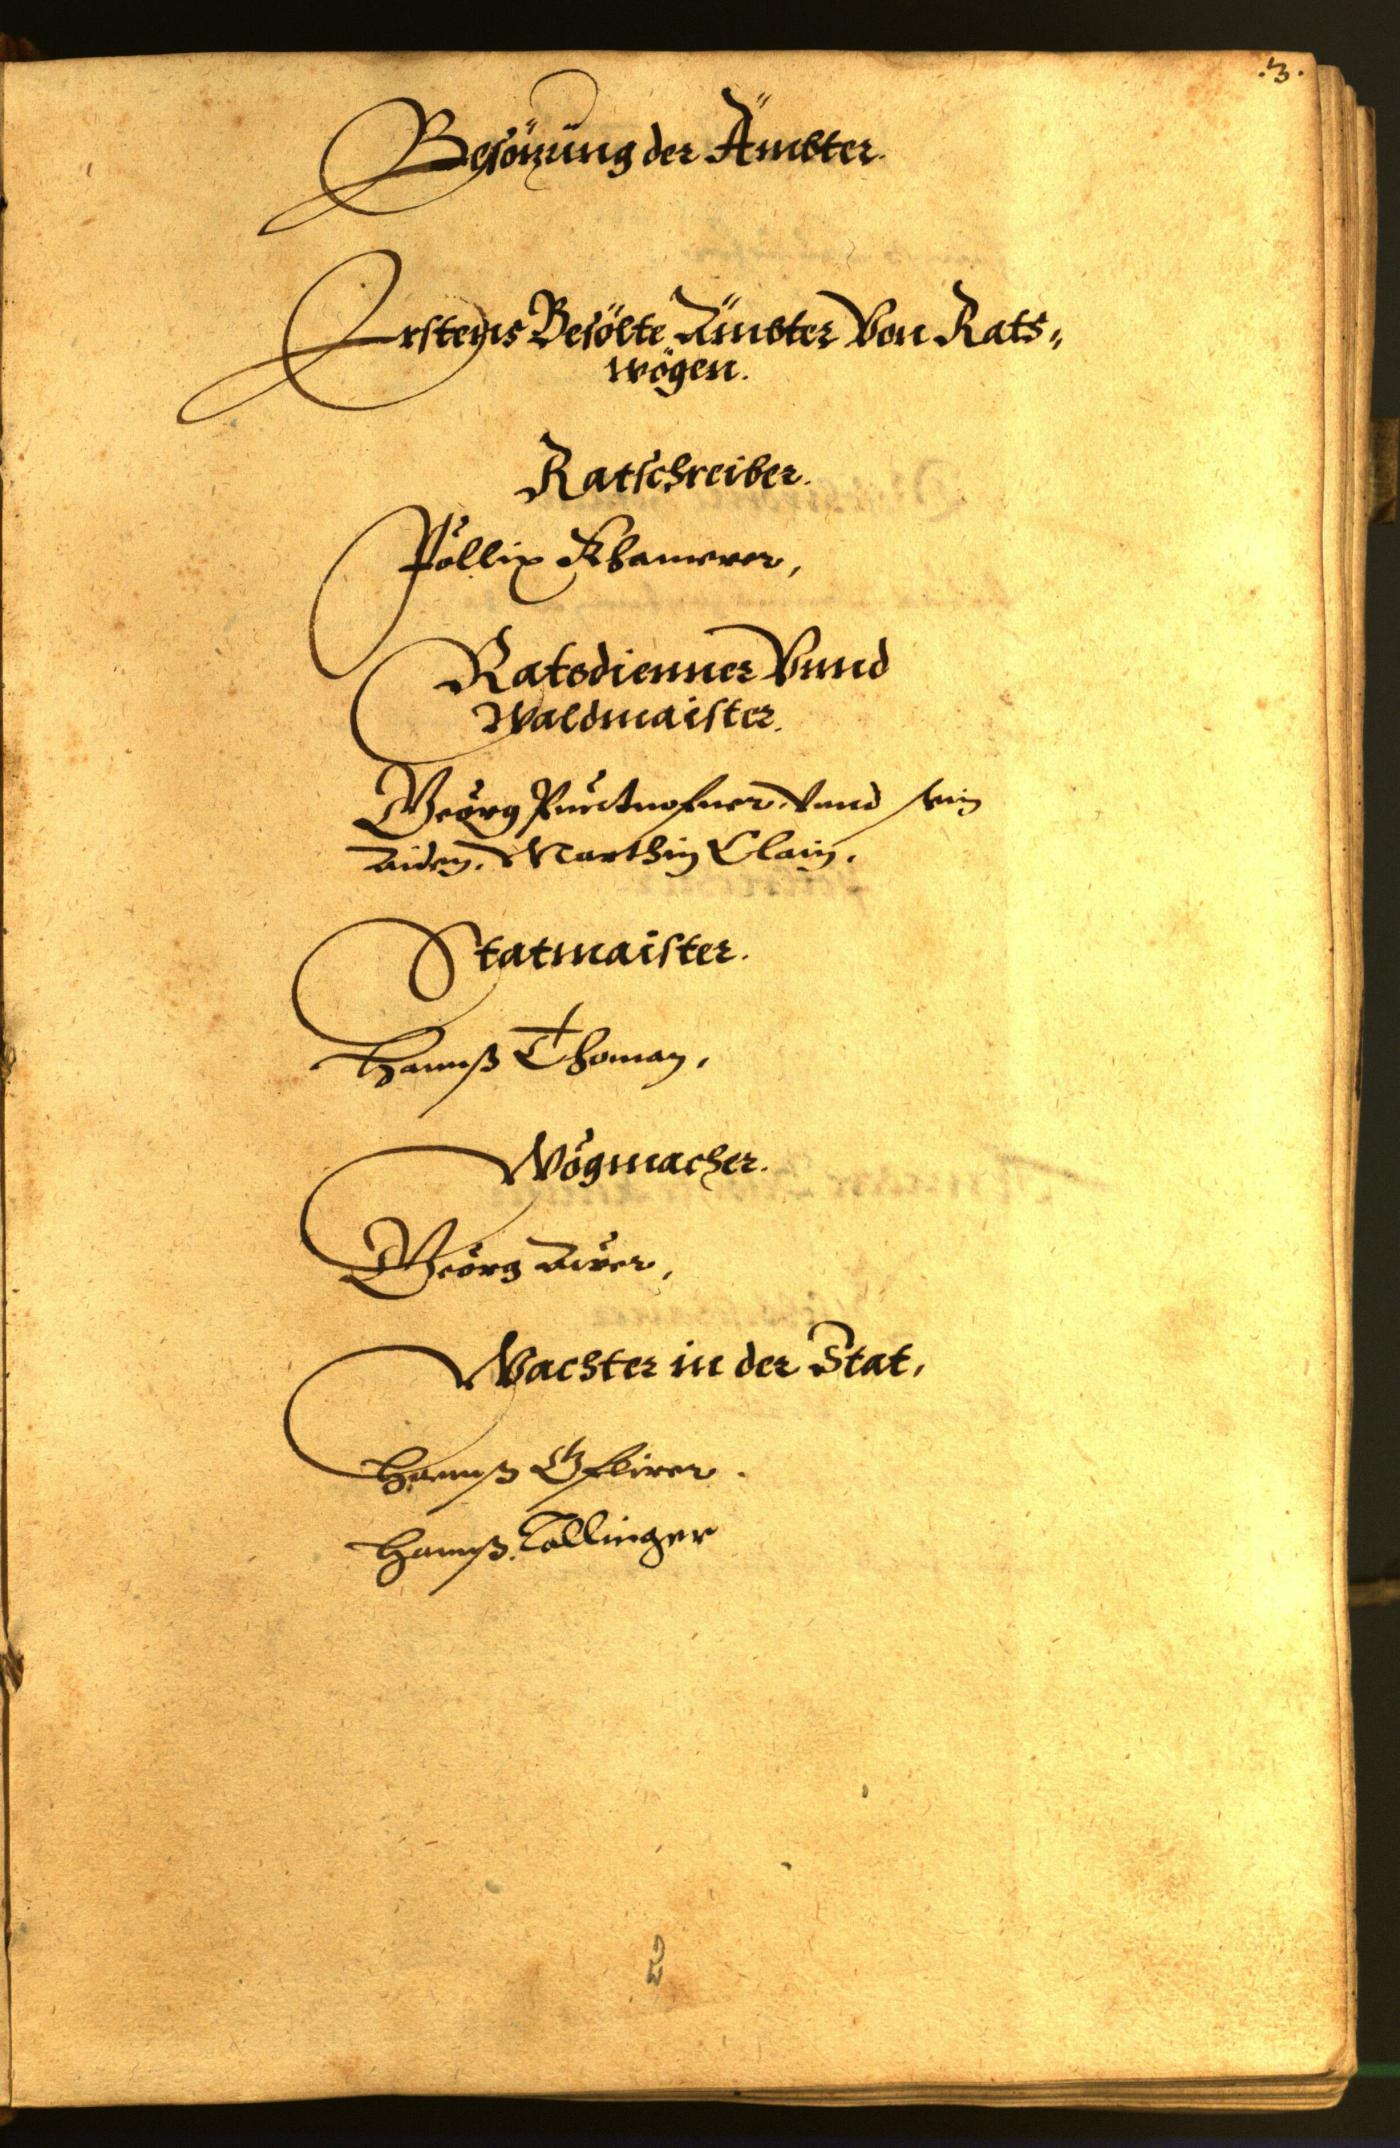 .3.
Besözüng der Ämbter.
Erstens Besölte Ämbter Von Rats„
wögen.
Ratschreiber.
Pöllix Khamerer,
Ratsdienner Vnnd
Waldmaister.
Geörg Vnnd sein
Aiden. Marthin Clain.
Statmaister.
Hannß Thoman,
Wögmacher.
Geörg
Wachter in der Stat,
Hannß
Hannß Zallinger